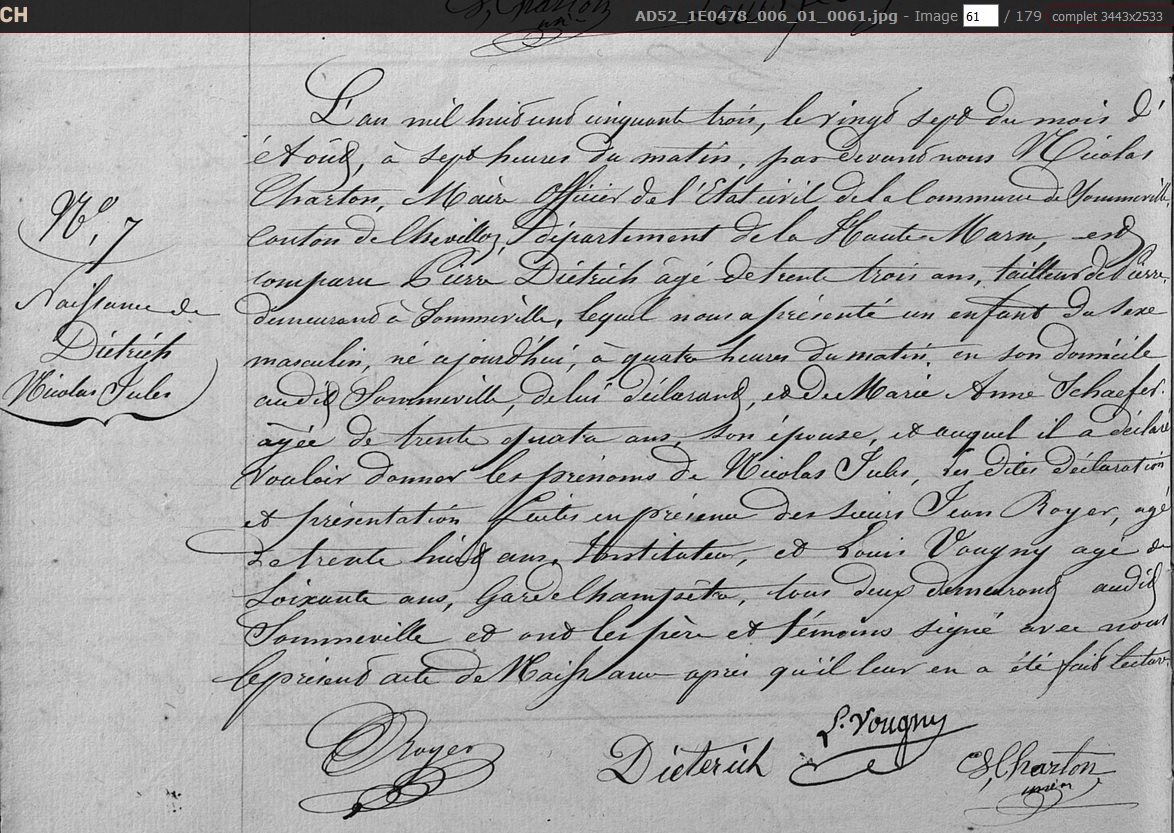 CH
AD52_1E0478_006_01_0061.jpg - Image 61 / 179 complet 3443x2533
S. Charton
L'an mil huit cent cinquante trois, le vingt sept du mois d'
Août, à sept heures du matin, par devant nous Nicolas
Charton, Maire Officier de l'Etat civil de la Commune de Sommeville,
Canton de Chevillon, Département de la Haute Marne, est
comparu Pierre Dietrich âgé de trente trois ans, tailleur de Pierre,
demeurant à Sommeville, lequel nous a présenté un enfant du sexe
masculin, né aujourd'hui, à quatre heures du matin, en son domicile
audit Sommeville, de lui déclarant, et de Marie Anne Schaefer
agée de trente quatre ans, son épouse, et auquel il a déclaré
vouloir donner les prénoms de Nicolas Jules, les dites déclaration
et présentation faites en présence des sieurs Jean Royer, agé
de trente huit ans, Instituteur, et Louis Vougny agé de
soixante ans, Garde Champêtre, tous deux demeurant audit
Sommeville et ont les père et témoins signé avec nous
le présent acte de Naissance après qu'il leur en a été fait lecture.
N.o 7
Naissance de
Dietrich
Nicolas Jules
Royer
Dieterich
L. Vougny
Charton